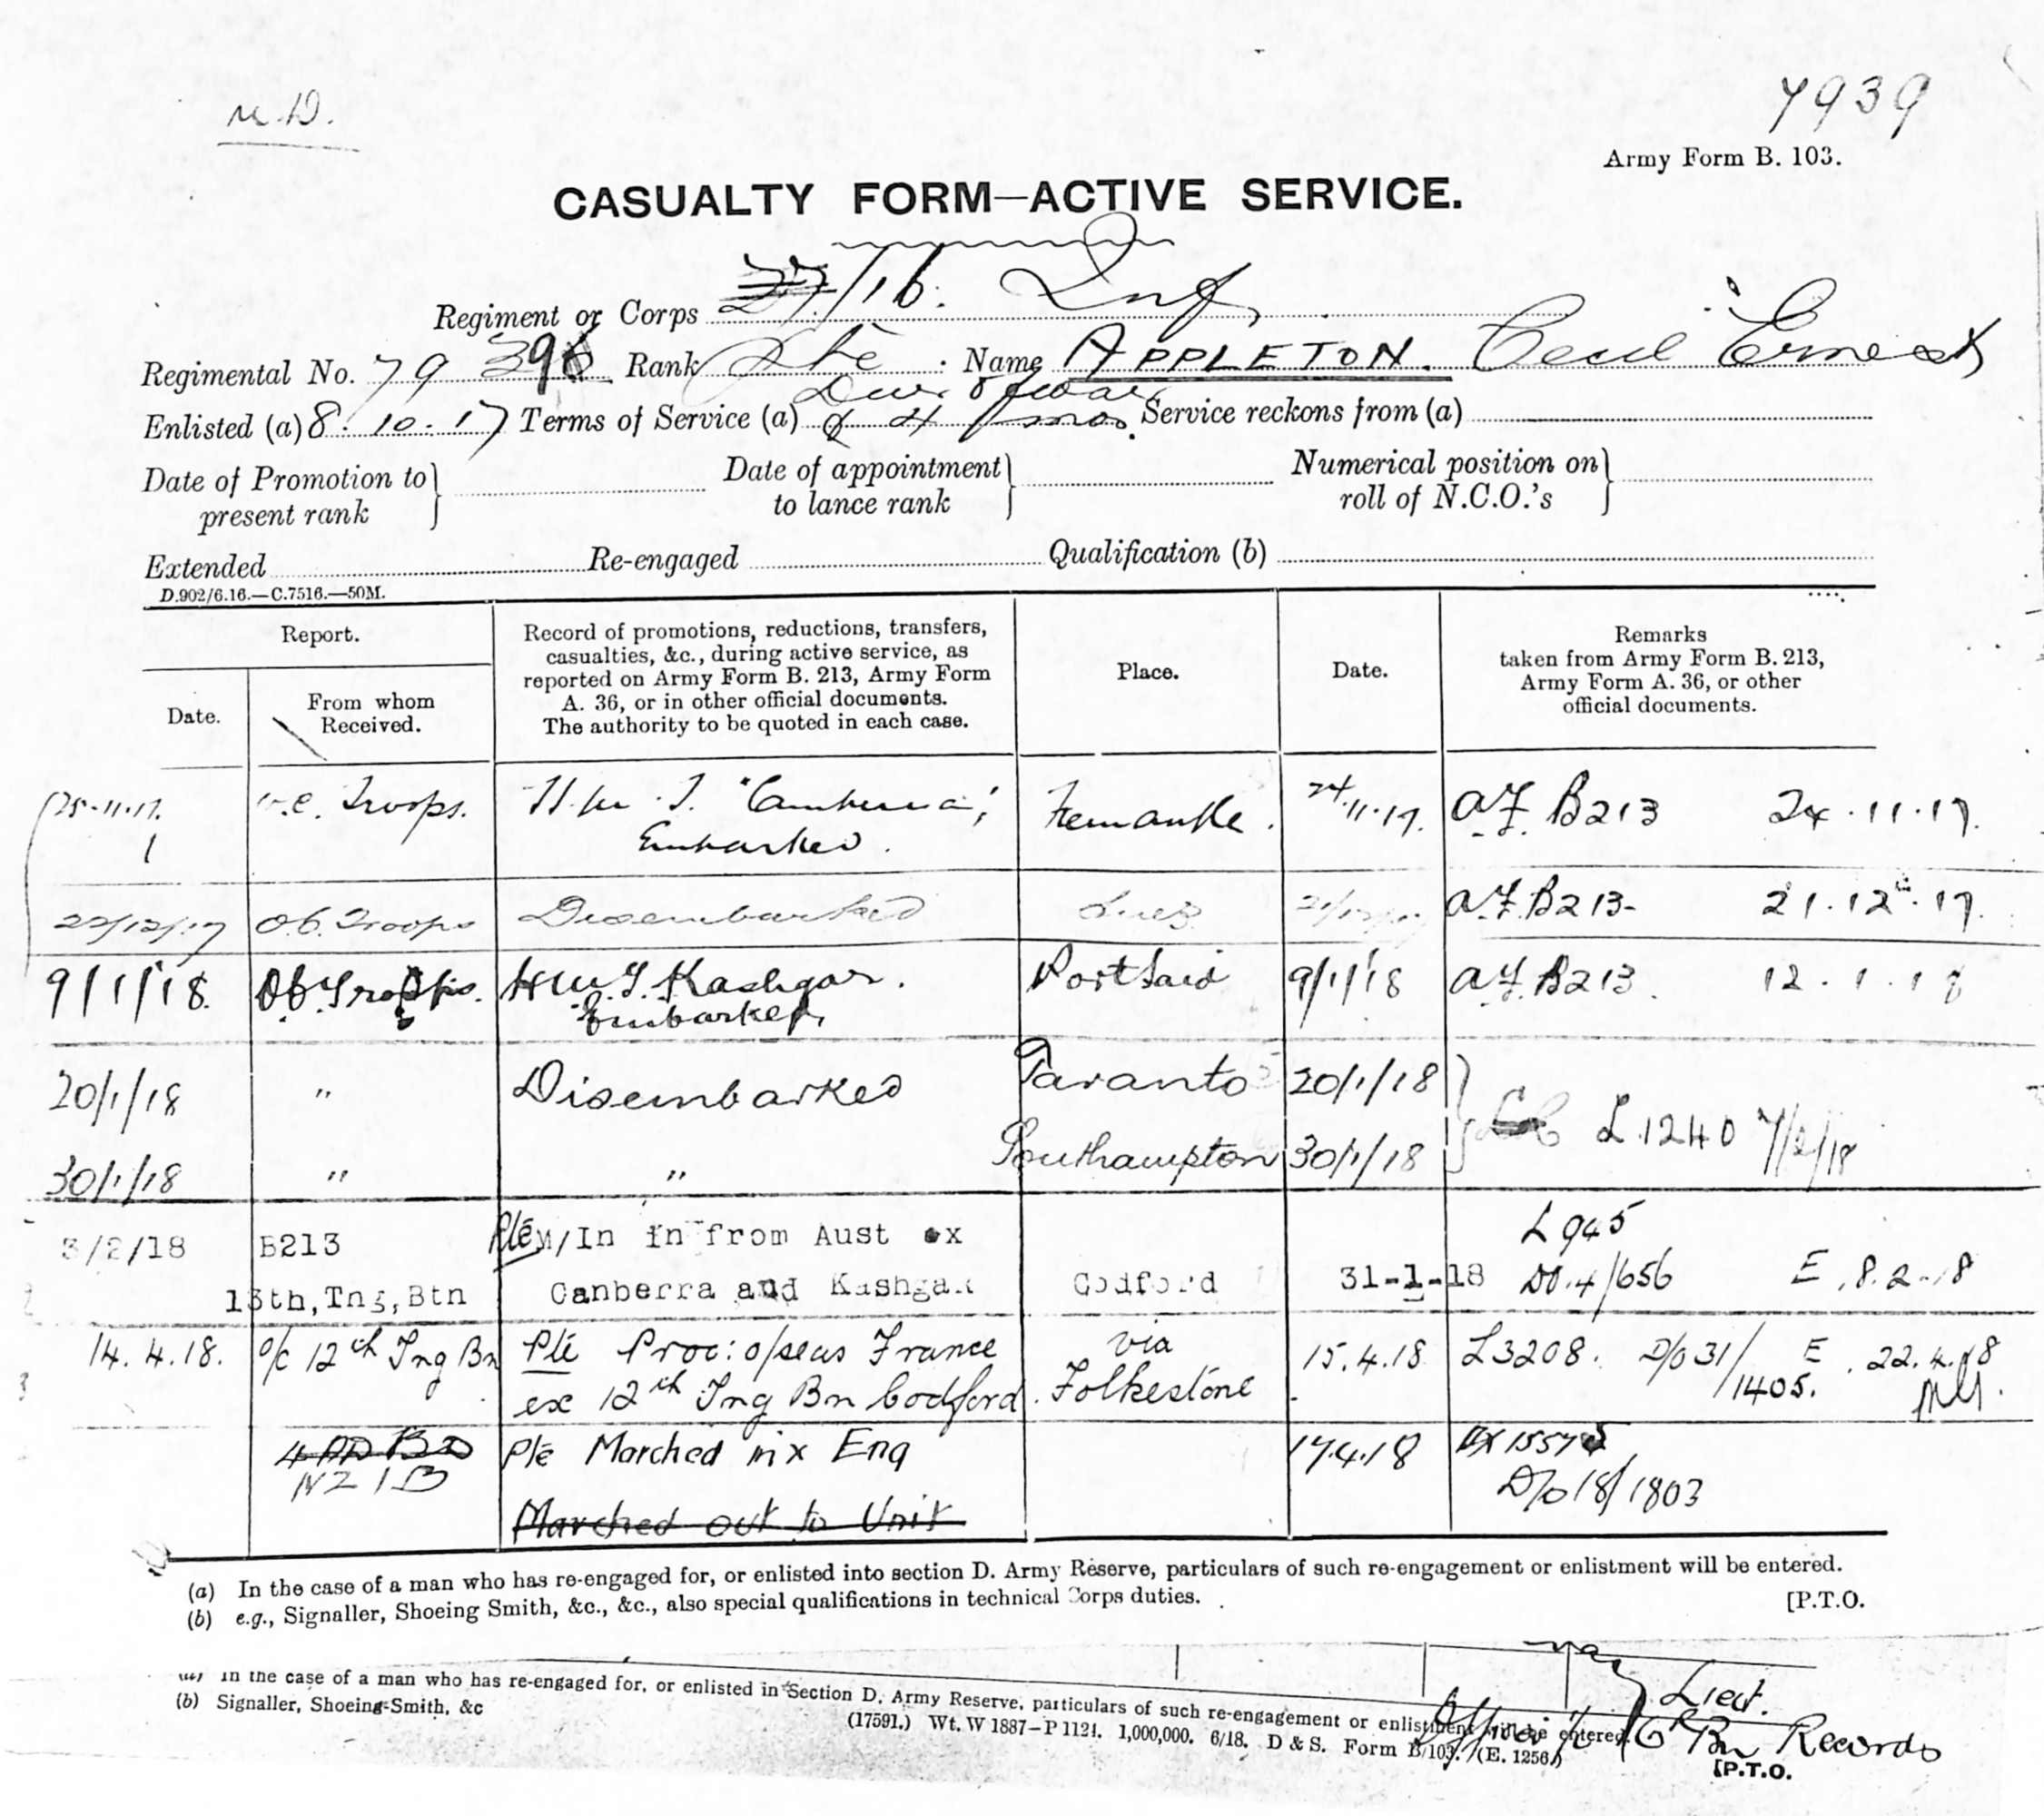 M.D.
7939
Army Form B. 103.
CASUALTY FORM—ACTIVE SERVICE.
Regiment or Corps 27/16. Inf
Regimental No. 79 396 Rank Pte Name APPLETON. Cecil Ernest
Dur. of war
Enlisted (a) 8.10.17 Terms of Service (a) & 4 mos. Service reckons from (a)
Date of Promotion to present rank
Date of appointment to lance rank
Numerical position on roll of N.C.O.'s
Extended Re-engaged Qualification (b)
D.902/6.16.—C.7516.—50M.
Report.
Date.
From whom Received.
Record of promotions, reductions, transfers,
casualties, &c., during active service, as
reported on Army Form B. 213, Army Form
A. 36, or in other official documents.
The authority to be quoted in each case.
Place.
Date.
Remarks
taken from Army Form B. 213,
Army Form A. 36, or other
official documents.
25.11.17. Troops. "Canberra" Fremantle. 24.11.17. A.F. B213 24.11.17.
Embarked.
22/12/17 O.C. Troops Disembarked Suez A.F. B213- 21.12.17.
9/1/18. O.C. Troops. H.M.T. Kashgar. Port Said 9/1/18 A.F. B213. 12.1.18
Embarked.
20/1/18 " Disembarked Taranto 20/1/18
L.1240 7/2/18
30/1/18 " " Southampton 30/1/18
3/2/18 B213 Pte M/In in from Aust ex L 945
13th,Tng,Btn Canberra and Kashgar Codford 31-1-18 DO.4/656 E.8.2.18
14.4.18. O/C 12th Tng Bn Pte Proc: o/seas France via 15.4.18 L3208. D/O 31/1405. E. 22.4.18
ex 12th Tng Bn Codford. Folkestone
4 ADBD Pte Marched in x Eng 17.4.18
D/o 18/1803
Marched out to Unit
(a) In the case of a man who has re-engaged for, or enlisted into section D. Army Reserve, particulars of such re-engagement or enlistment will be entered.
(b) e.g., Signaller, Shoeing Smith, &c., &c., also special qualifications in technical Corps duties.
[P.T.O.
In the case of a man who has re-engaged for, or enlisted in Section D. Army Reserve, particulars of such re-engagement or enlistment will be entered.
(b) Signaller, Shoeing-Smith, &c
(17591.) Wt. W 1887-P 1121. 1,000,000. 6/18. D & S. Form B/103. (E. 1256.)
Lieut.
Officer i/c 16th Bn Records
[P.T.O.